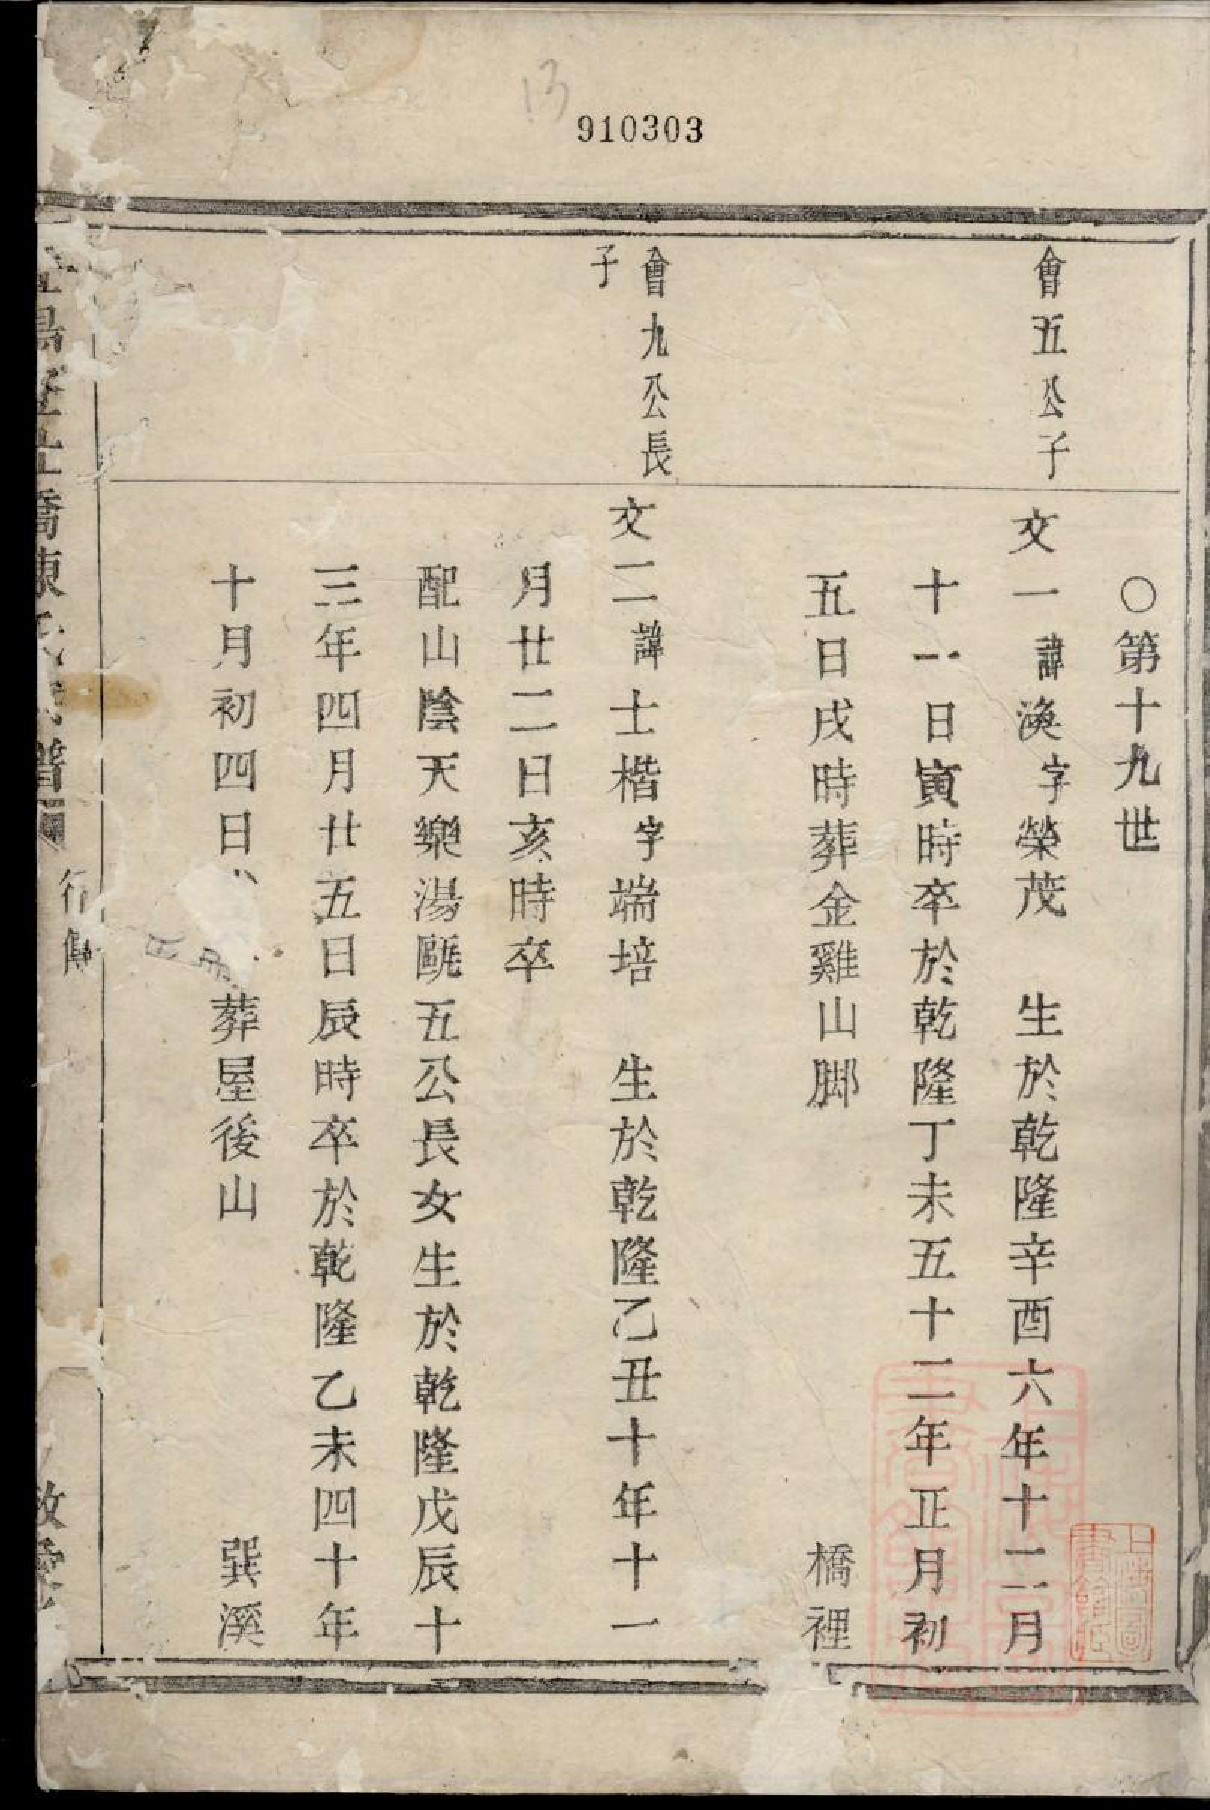 13
910303
○第十九世
會五公子
文一諱渙字榮茂 生於乾隆辛酉六年十二月
十一日寅時卒於乾隆丁未五十二年正月初
五日戌時葬金雞山脚 橋裡
會九公長
子
文二諱士楷字端培 生於乾隆乙丑十年十一
月廿二日亥時卒
配山陰天樂湯甌五公長女生於乾隆戊辰十
三年四月廿五日辰時卒於乾隆乙未四十年
十月初四日 葬屋後山 巽溪
橋陳氏宗譜
行傳
敬愛